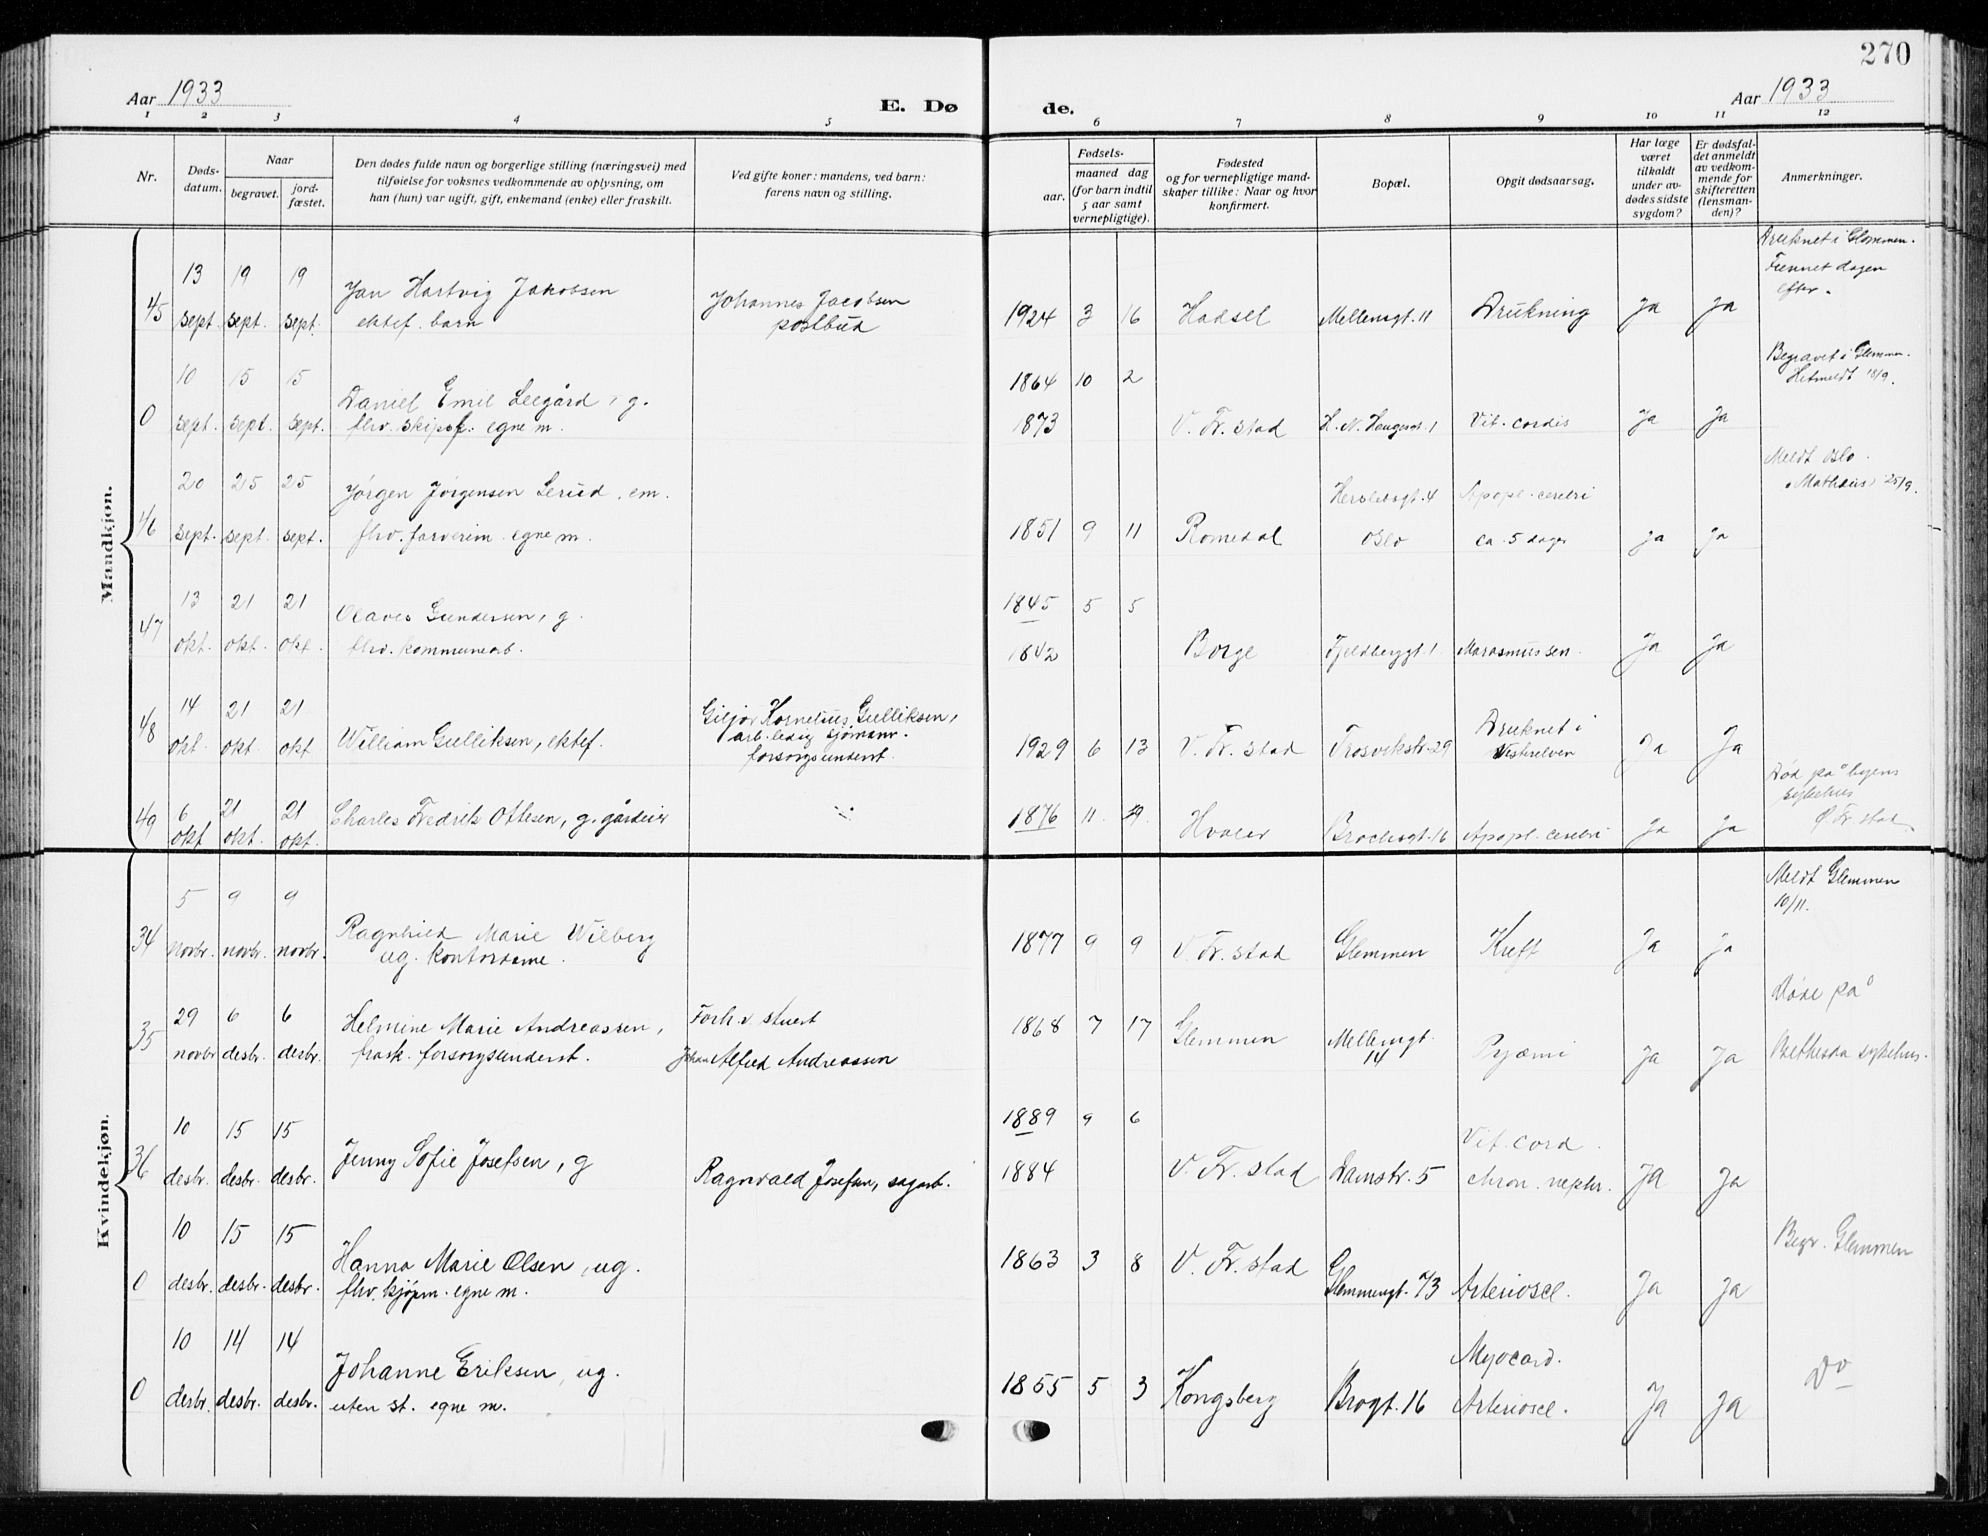 270
Aar 1933
E. Dø
de.
Aar 1933
1 2 3 4 5 6 7 8 9 10 11 12
Nr.
Døds-
datum.
Naar
begravet.
jord-
fæstet.
Den dødes fulde navn og borgerlige stilling (næringsvei) med
tilføielse for voksnes vedkommende av oplysning, om
han (hun) var ugift, gift, enkemand (enke) eller fraskilt.
Ved gifte koner: mandens, ved barn:
farens navn og stilling.
Fødsels-
aar.
maaned dag
(for barn indtil
5 aar samt
vernepligtige).
Fødested
og for vernepligtige mand-
skaper tillike: Naar og hvor
konfirmert.
Bopæl.
Opgit dødsaarsag.
Har læge
været
tilkaldt
under av-
dødes sidste
sygdom?
Er dødsfal-
det anmeldt
av vedkom-
mende for
skifteretten
(lensman-
den)?
Anmerkninger.
Mandkjøn.
45
13 19 19
sept. sept. sept.
Jan Hartvig Jakobsen
ektef. barn
Johannes Jacobsen
postbud
1924 3 16 Hadsel Mellemgt. 11 Drukning Ja Ja
Druknet i Glommen.
Funnet dagen
efter.
0
10 15 15
sept. sept. sept.
Daniel Emil Leegård, g.
fhv. skipsf. egne m.
1864 10 2
1873 V. Fr. stad H. N. Haugesgt. 1 Vit. cordis Ja Ja
Begravet i Glemmen.
Hitmeldt 18/9.
46
20 25 25
sept. sept. sept.
Jørgen Jørgensen Lerud, em.
fhv. farverim. egne m.
1851 9 11 Romedal
Herslebsgt. 4
Oslo
Apopl. cerebri
ca. 5 dager
ja ja
Meldt Oslo.
Mathæus 25/9.
47
13 21 21
okt. okt. okt.
Olaves Gundersen, g.
fhv. kommunearb.
1845 5 5
1842 Borge Fjeldberggt. 1 Marasmus sen. Ja Ja
48
14 21 21
okt. okt. okt.
William Gulliksen, ektef.
Giljor Kornelius Gulliksen,
arb.ledig sjømann.
forsorgsunderst.
1929 6 13 V. Fr. stad Trosvikstr. 29
Druknet i
Vesterelven
Ja Ja
49
6 21 21
okt okt. okt.
Charles Fredrik Ottesen, g. gårdeier
1876 11 Hvaler Brochsgt. 16 Apopl. cerebri Ja ja
Død på byens
sykehus
Ø. Fr. stad
Kvindekjøn.
34
5 9 9
novbr. novbr. novbr.
Ragnhild Marie Wilberg
ug. kontordame.
1877 9 9 V. Fr. stad Glemmen Kreft Ja ja
Meldt Glemmen
10/11.
35
29 6 6
novbr desbr. desbr.
Helmine Marie Andreassen,
frask. forsorgsunderst.
Forh.v. stuert
Johan Alfred Andreassen
1868 7 17 Glemmen
Mellemgt.
14
Pyæmi Ja Ja
Døde på
Bethesda sykehus.
36
10 15 15
desbr. desbr. desbr.
Jenny Sofie Josefsen, g
Ragnvald Josefsen, sagarb.
1889 9 6
1884 V. Fr. stad Damstr. 5
Vit. cord.
chron. nephr.
Ja Ja
0
10 15 15
desbr. desbr. desbr.
Hanna Marie Olsen, ug.
fhv. kjøpm. egne m.
1863 3 8 V. Fr. stad Glemmengt. 73 Arteriosel. Ja Ja
Begr. Glemmen
0
10 14 14
desbr. desbr. desbr.
Johanne Eriksen, ug.
uten st. egne m.
1855 5 3 Kongsberg Brogt. 16
Myocard.
Arteriosel.
Ja Ja
Do